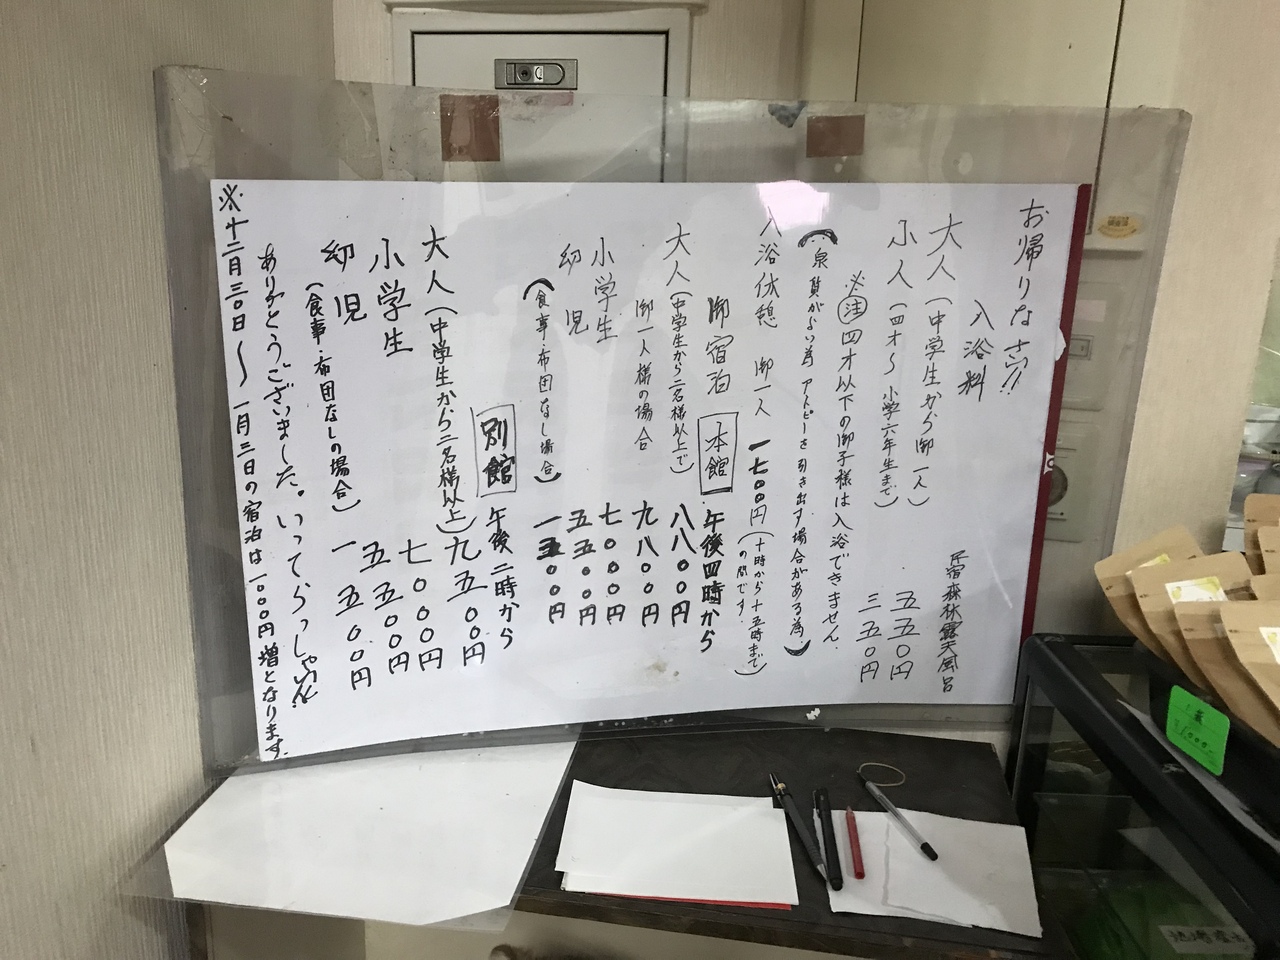 お帰りなさい!!
入浴料
民宿森林露天風呂
大人(中学生から御一人) 五五〇円
小人(四才〜小学六年生まで) 三五〇円
※注 四才以下の御子様は入浴できません
(泉質がよい為アトピーを引き出す場合がある為)
入浴休憩 御一人 一七〇〇円(十時から十五時まで
の間です)
御宿泊 本館 午後四時から
大人(中学生から二名様以上で) 八八〇〇円
御一人様の場合 九八〇〇円
小学生 七〇〇〇円
幼児 五五〇〇円
(食事・布団なし場合) 一五〇〇円
別館 午後二時から
大人(中学生から二名様以上) 九五〇〇円
小学生 七〇〇〇円
幼児 五五〇〇円
(食事・布団なしの場合) 一五〇〇円
ありがとうございました。いってらっしゃい!!
※十二月三〇日〜一月三日の宿泊は一〇〇〇円増となります。